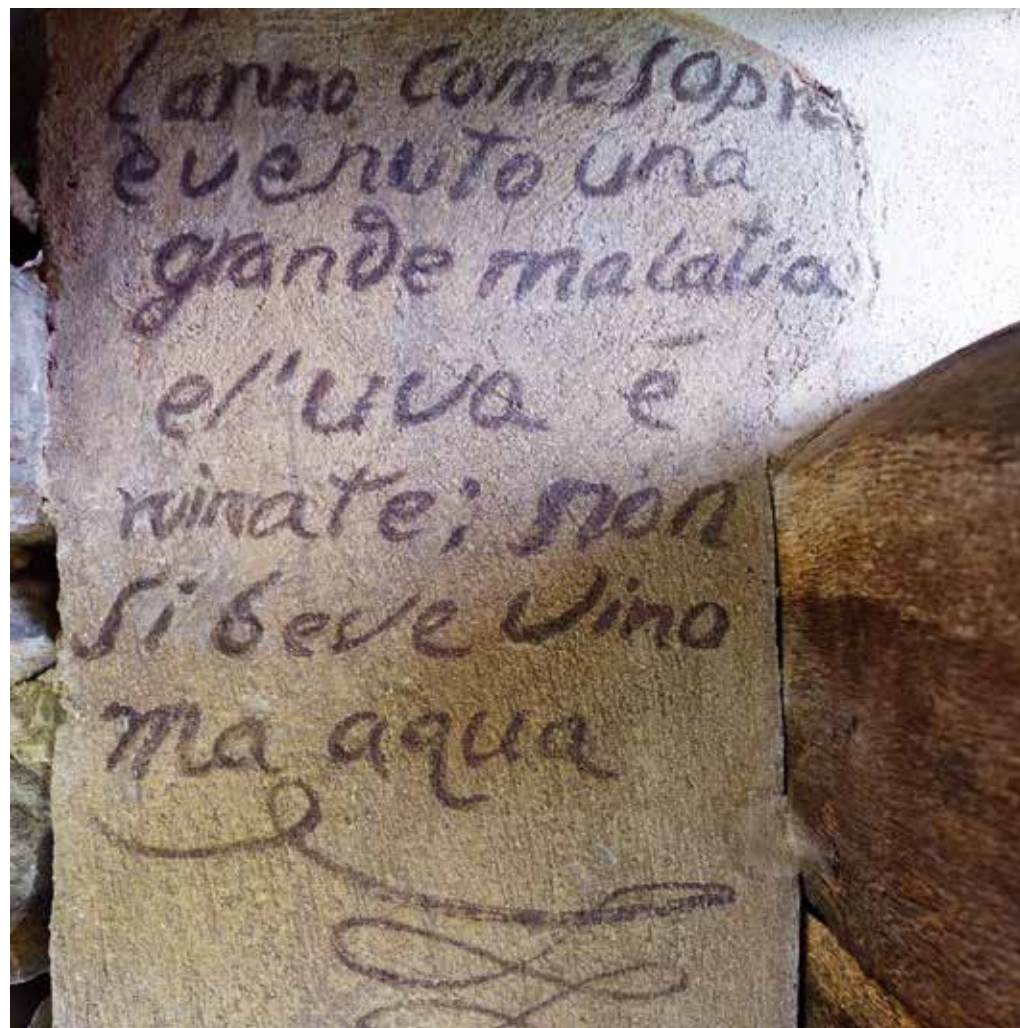 L'anno come sopra
è venuto una
grande malatia
e l'uva è
ruinate; non
si beve vino
ma aqua